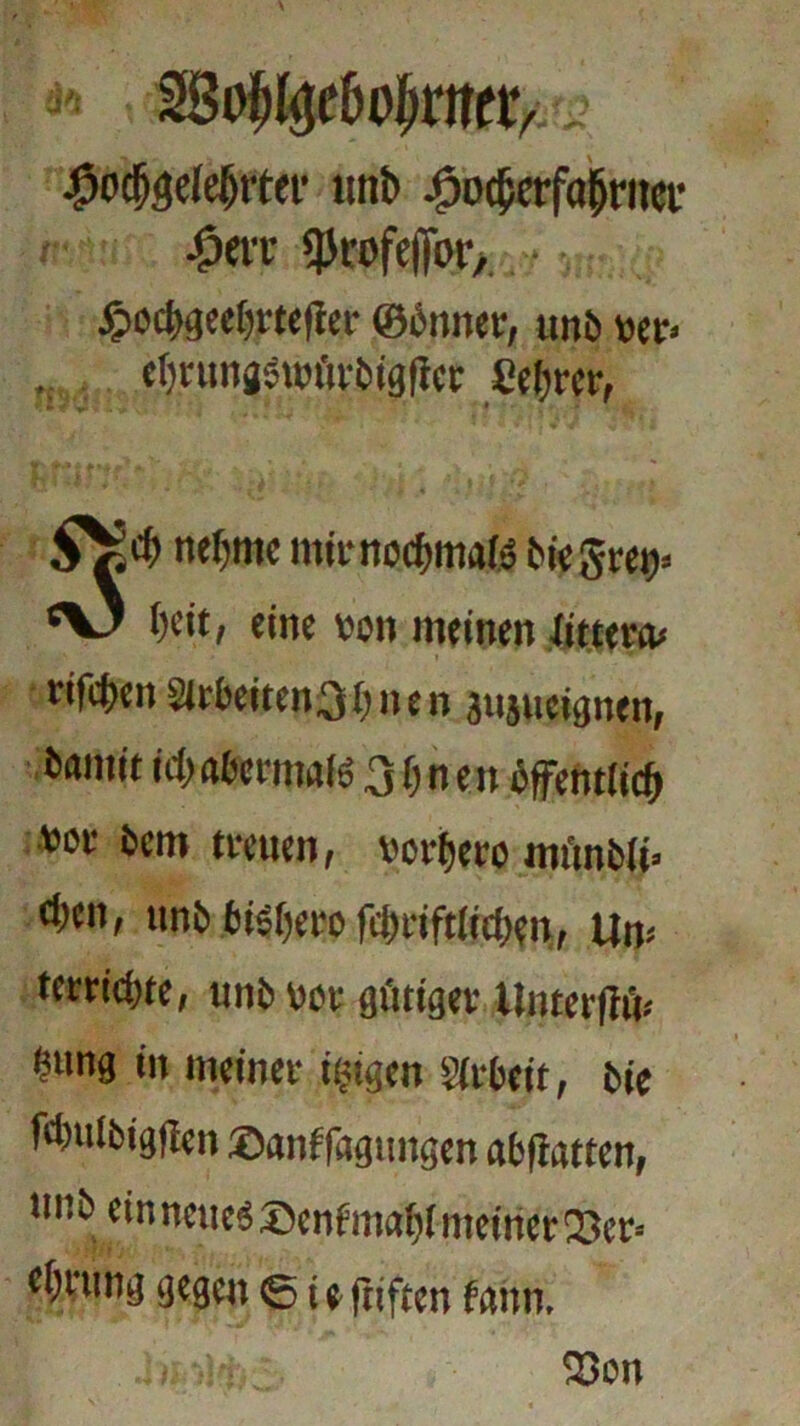 Wohlgebohrner,
Hochgelehrter und Hocherfahrner
Herr Professor,
Hochgeehrtester Gönner, und ver-
ehrungswürdigster Lehrer,
Ich nehme mir nochmals die Frey-
heit, eine von meinen littera-
rischen Arbeiten Ihnen zuzueignen,
damit ich abermals Ihnen öffentlich
vor dem treuen, vorhero mündli-
chen, und bishero schriftlichen, Un-
terrichte, und vor gütiger Unterstü-
tzung in meiner itzigen Arbeit, die
schuldigsten Danksagungen abstatten,
und ein neues Denkmahl meiner Ver-
ehrung gegen Sie stiften kann.
Von